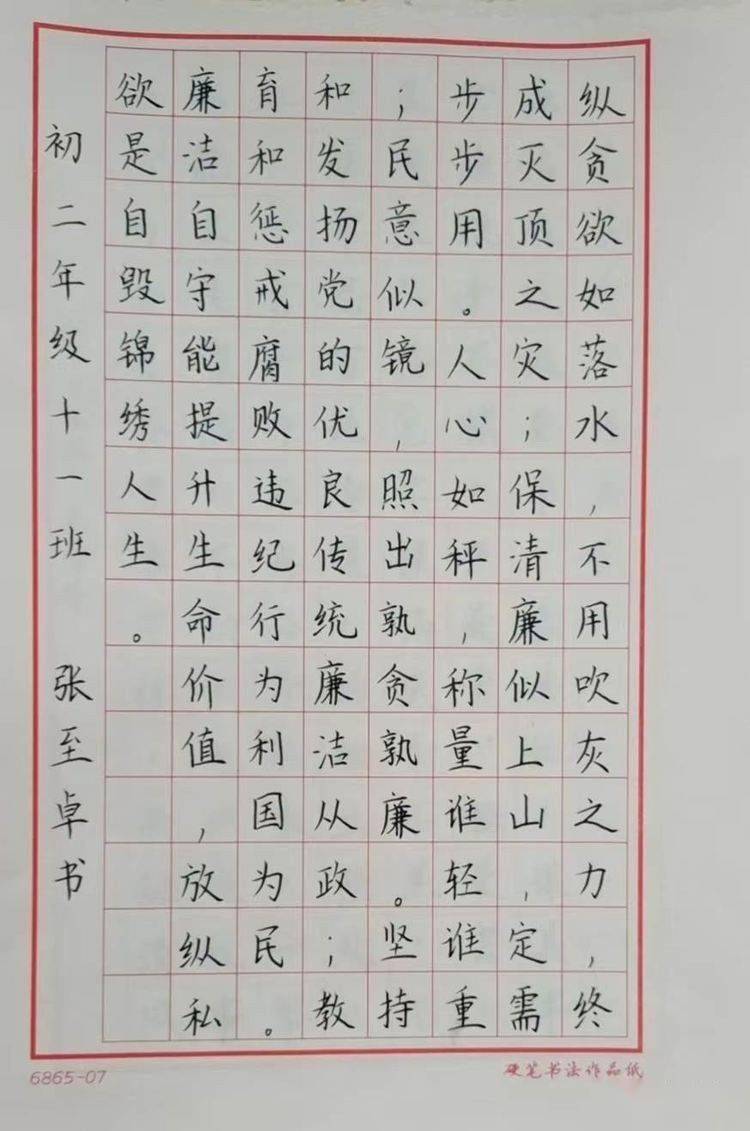 纵贪欲如落水，不用吹灰之力，终
成灭顶之灾；保清廉似上山，定需
步步用。人心如秤，称量谁轻谁重
；民意似镜，照出孰贪孰廉。坚持
和发扬党的优良传统廉洁从政；教
育和惩戒腐败违纪行为利国为民。
廉洁自守能提升生命价值，放纵私
欲是自毁锦绣人生。
初二年级十一班 张至卓书
6865-07
硬笔书法作品纸